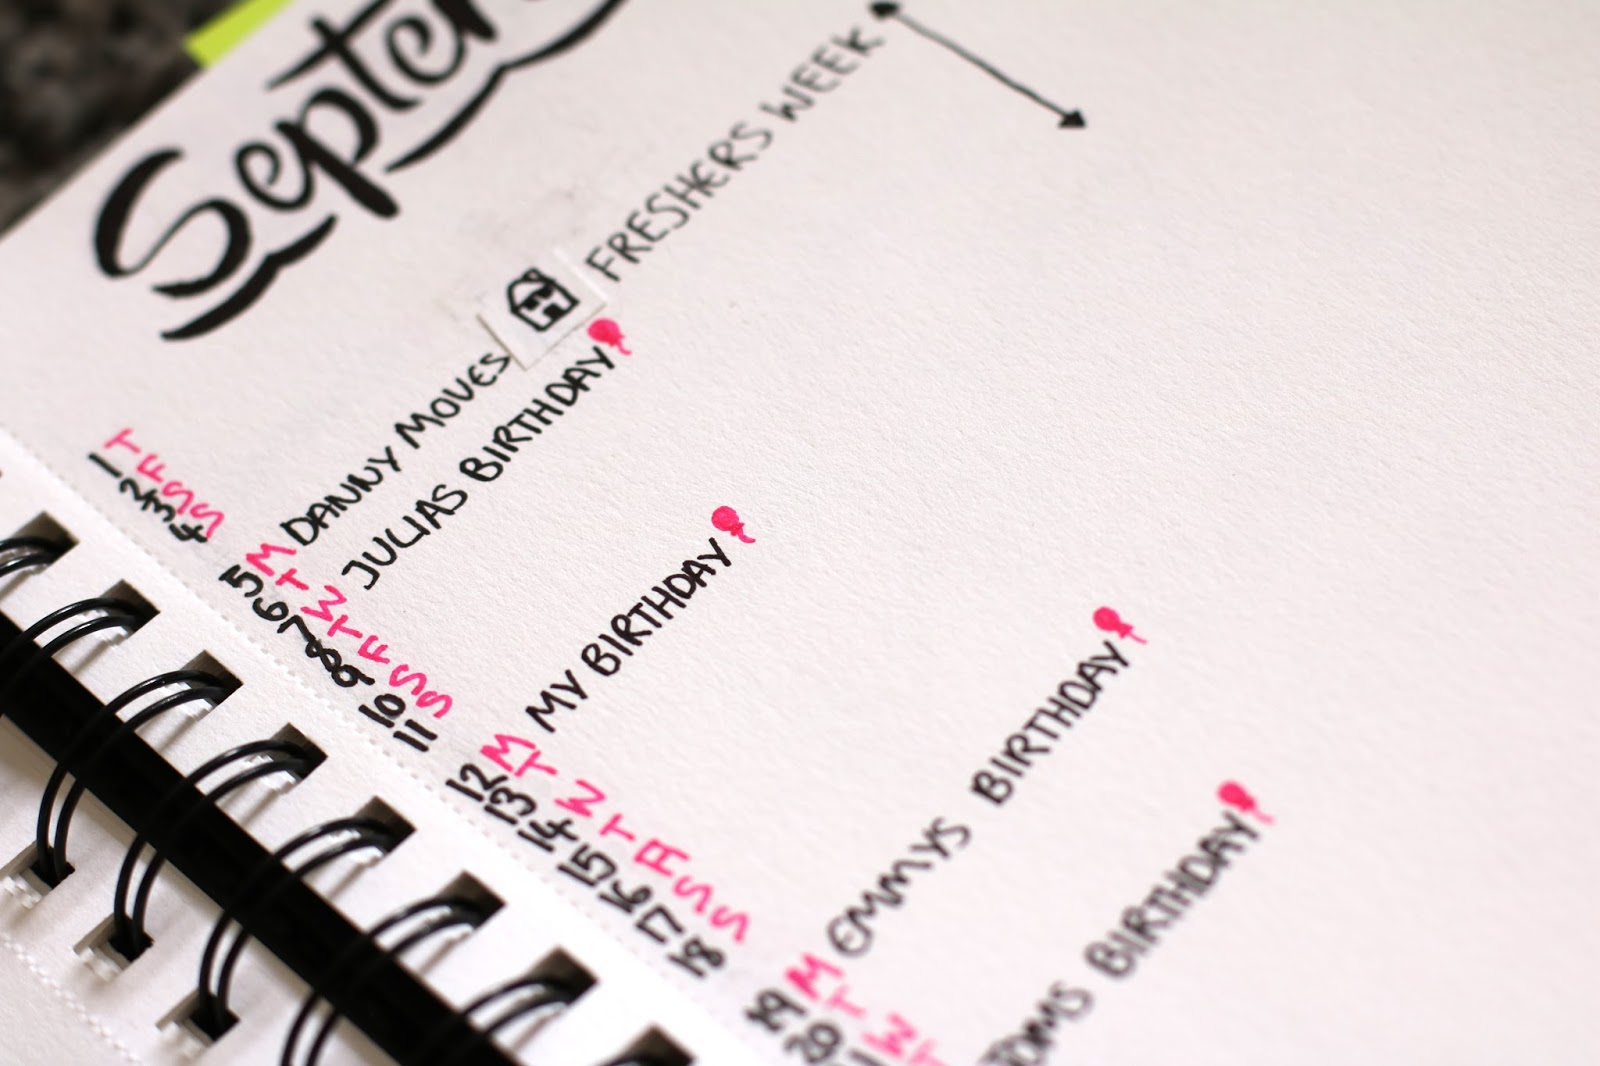 Septem
1 T
2 F
3 S
4 S
5 M DANNY MOVES FRESHERS WEEK
6 T
7 W JULIAS BIRTHDAY
8 T
9 F
10 S
11 S
12 M MY BIRTHDAY
13 T
14 W
15 T
16 F
17 S
18 S
19 M EMMYS BIRTHDAY
20 T
1 W
T
TOMS BIRTHDAY